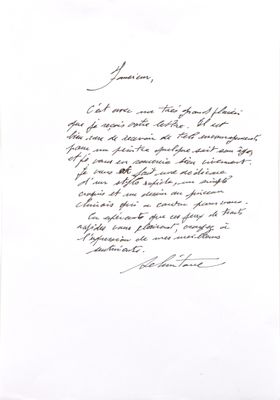 Monsieur,
C'est avec un très grand plaisir
que je reçois votre lettre. Il est
bien rare de recevoir de tels encouragements
pour un peintre quelque soit son âge,
et je vous en remercie bien vivement.
Je vous ai fait une dédicace
d'un style rapide, un simple
croquis et un dessin au pinceau
chinois qui a couru pour vous.
En espérant que ces jeux de traits
rapides vous plairont, croyez à
l'expression de mes meilleurs
sentiments.